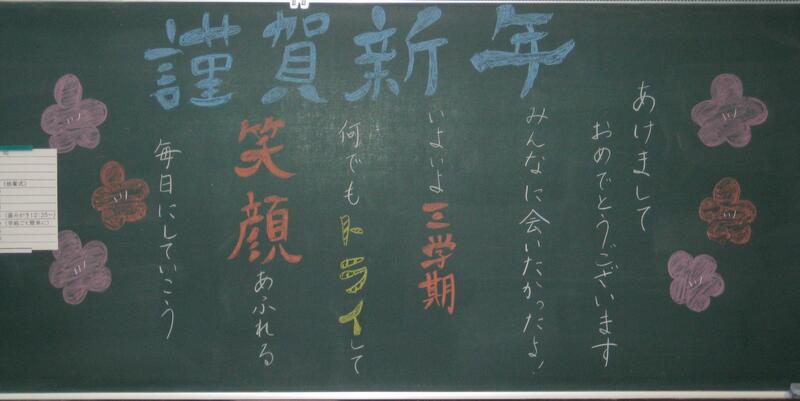 謹賀新年
あけまして
おめでとうございます
みんなに会いたかったよ!
いよいよ三学期
何でもトライして
笑顔あふれる
毎日にしていこう
(給食ご飯持参に)